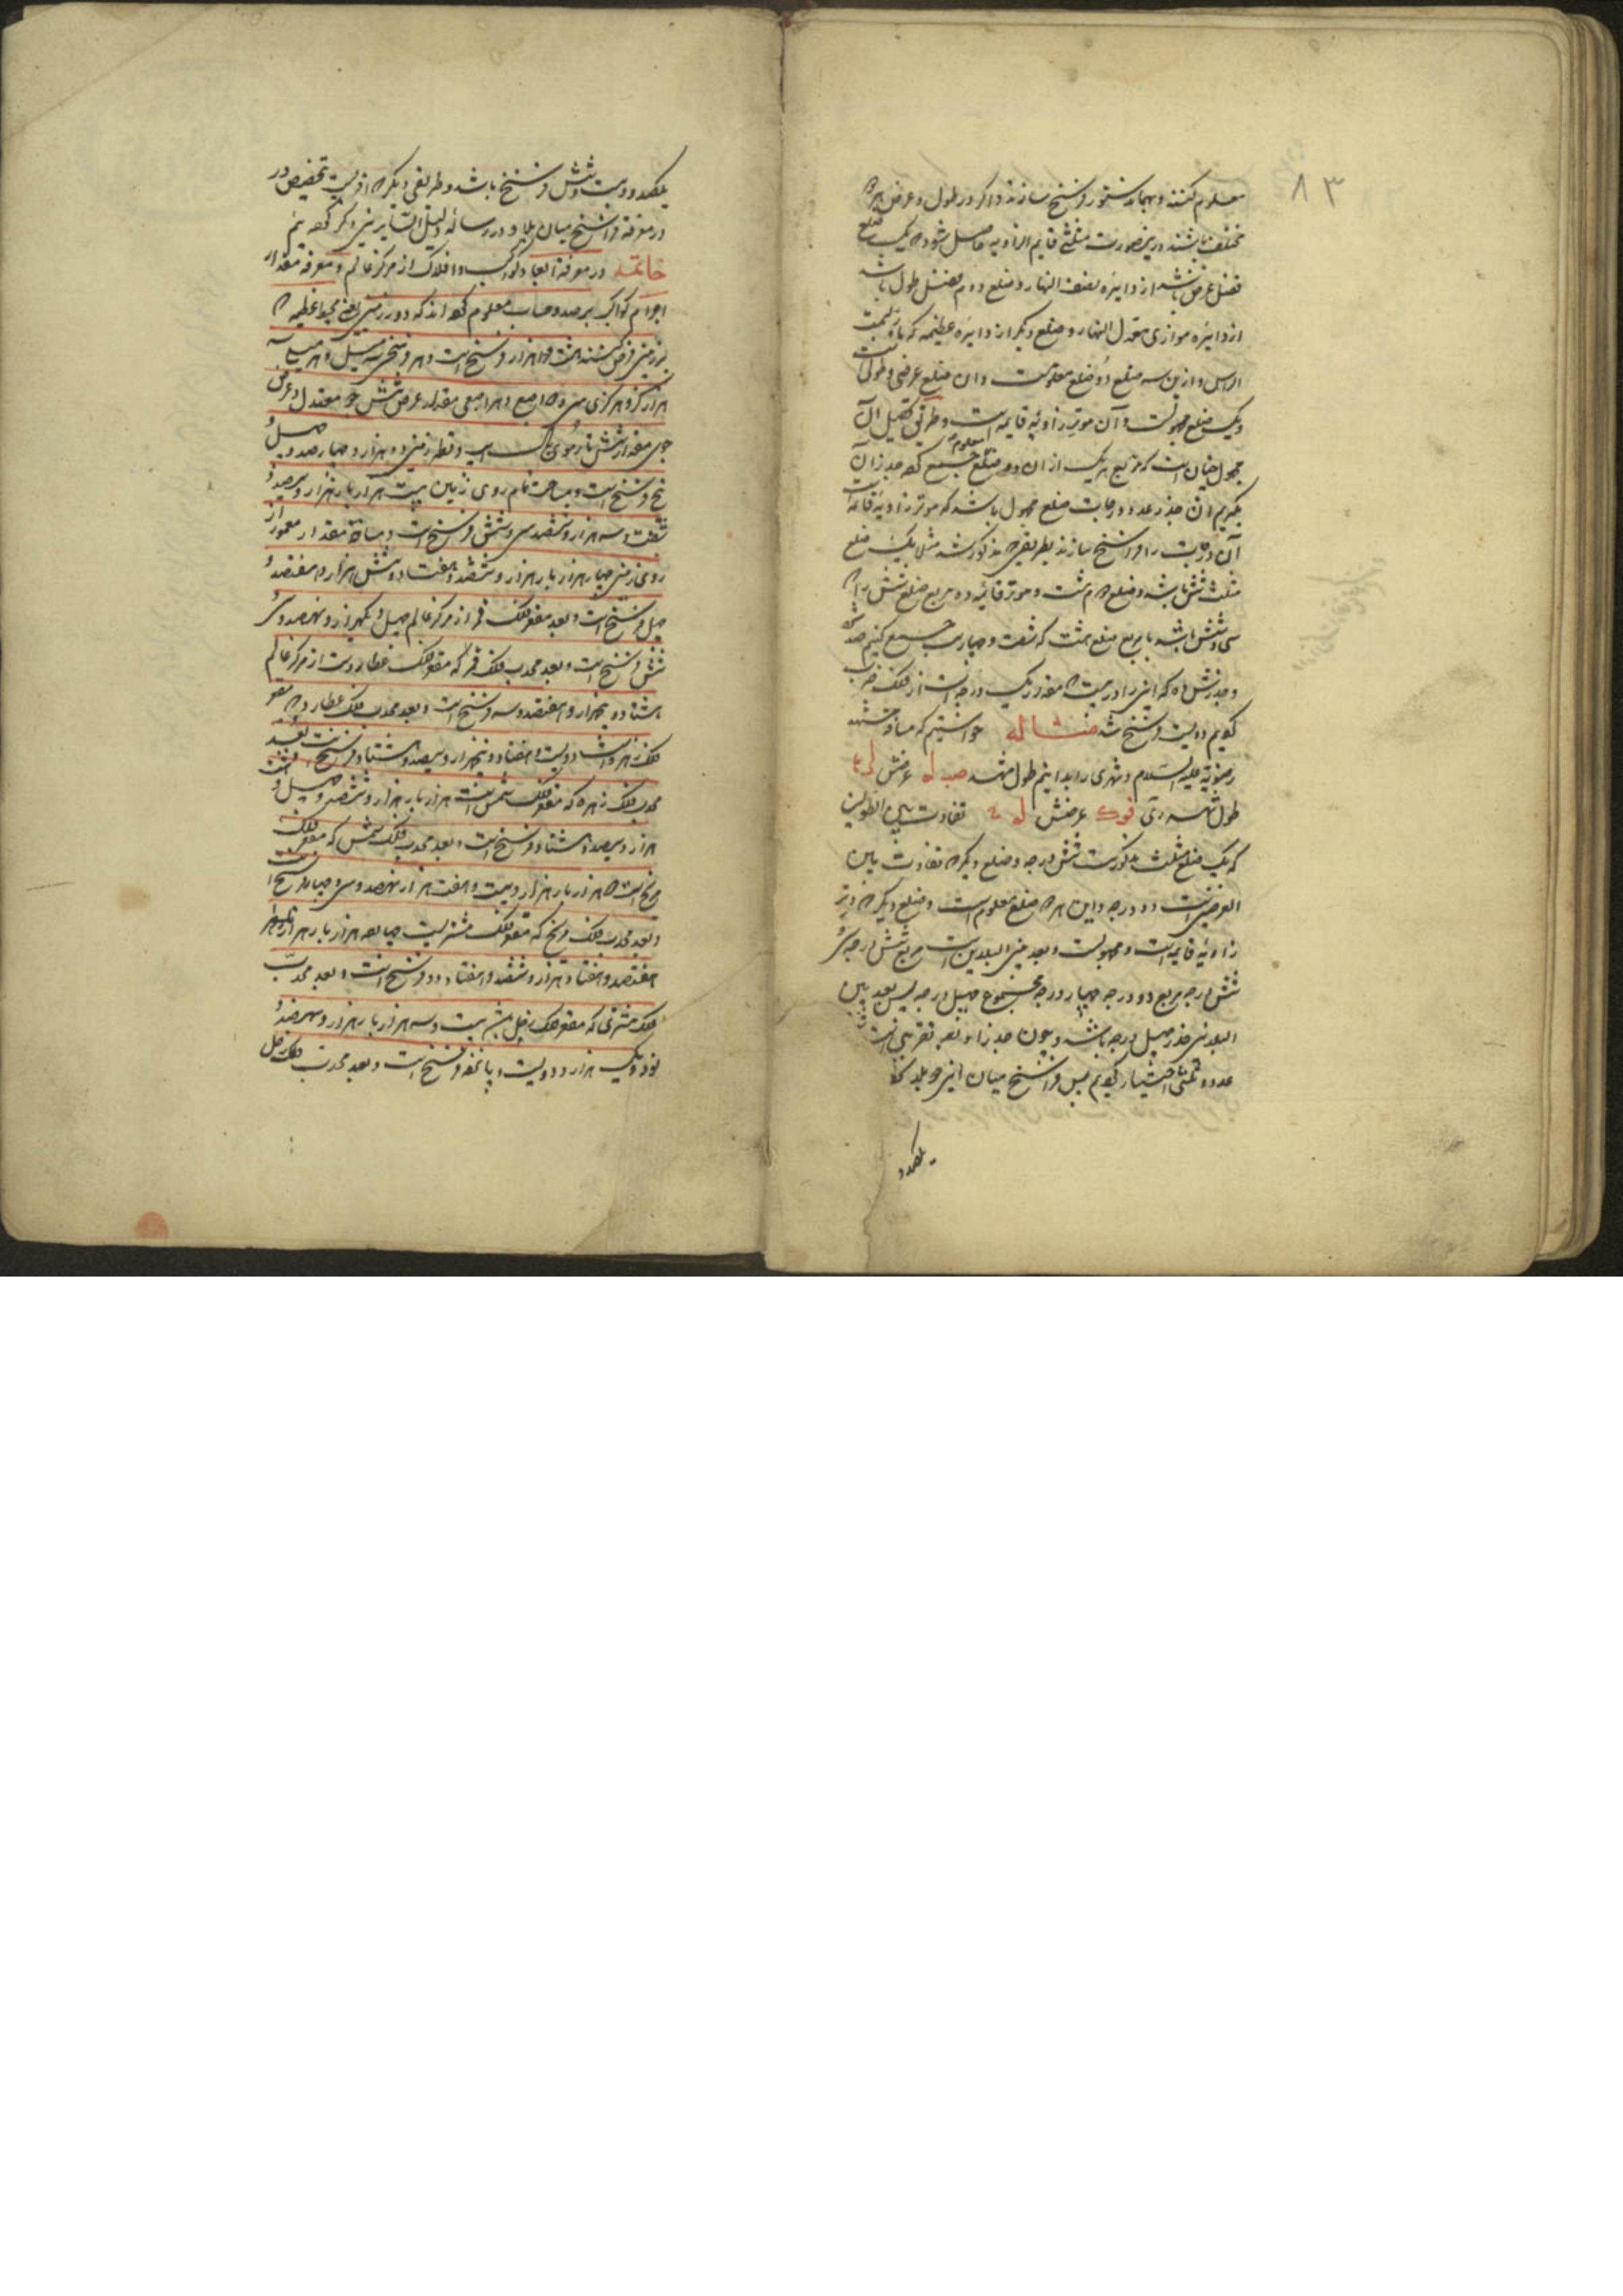 ۸۳
معلوم کنند و بهمان دستور فرسخ سازند و اگر در طول و عرض هر دو
مختلف باشند درینصورت مثلثی قایم الزاویه حاصل شود که یک ضلع
فضل عرض باشد از دایره نصف النهار و ضلع دوم فضل طول باشد
از دایره موازی معدل النهار و ضلع دیگر از دایره عظیمه که بر سمت
الراس و ازین سه ضلع دو ضلع معلومست و آن ضلع عرضی و طولی است
و یک ضلع مجهولست و آن موتر زاویه قایمه است و طریق تحصیل آن
مجهول چنان است که مربع هر یک از آن دو ضلع معلوم جمع کرده جذر آن
بگیریم آن جذر عدد درجات ضلع مجهول باشد که موتر زاویه قائمه است
آن درجات را فراسخ سازند بطریقی که مذکور شد مثلا یک ضلع
مثلث شش باشد و ضلع دوم هشت و موتر قائمه ده مربع ضلع شش را که
سی و شش باشد با مربع ضلع هشت که شصت و چهار است جمع کنیم صد شود
و جذرش ده که این را در بیست که مقدار یک درجه است از فلک ضرب
کنیم دویست فرسخ شد مثاله خواستیم که مسافت مشهد
رضویه علیه السلام و شهر ری را بدانیم طول مشهد صب له عرضش لر ما
طول شهر ری فوک عرضش له ۲ تفاوت بین الطولین
که یک ضلع مثلث مذکور است شش درجه و ضلع دیگر که تفاوت بین
العرضین است دو درجه و این هر دو ضلع معلوم است و ضلع دیگر که وتر
زاویه قایمه است و مجهولست و بعد بین البلدین است مربع شش درجه سی و
شش درجه مربع دو درجه چهار درجه مجموع چهل درجه پس بعد بین
البلدین جذر چهل درجه باشد و چون جذر او تقریبی است
عدد اختیار کنیم پس فراسخ میان این دو بلد
یکصد و
یکصد و بیست و شش فرسخ باشد و طریقی دیگر که اقربست بتحقیق در
در معرفة فراسخ میان بلاد در رساله دلیل السایرین ذکر کرده‌ایم
خاتمه در معرفة ابعاد کواکب و افلاک از مرکز عالم و معرفة مقدار
اجرام کواکب برصد و حساب معلوم کرده‌اند که دور زمین یعنی محیط عظیمه که
بر زمین فرض کنند هشت هزار فرسخ است و هر فرسخی سه میل و هر میل سه
هزار گز و هر گزی سی و دو اصبع و هر اصبعی مقدار عرض شش جو معتدل و عرض
جوی مقدار شش تار موی یال اسب و قطر زمین دو هزار و چهارصد و چهل و
پنج فرسخ است و مساحت تمام روی زمین بیست هزار بار هزار و سیصد و
شصت و سه هزار و ششصد و سی و شش فرسخ است و مساحة مقدار معمور از
روی زمین چهار هزار بار هزار و ششصد و هفتاد و شش هزار و هفتصد و
چهل فرسخ است و بعد مقعر فلک قمر از مرکز عالم چهل و یکهزار و نهصد و سی و
شش فرسخ است و بعد محدب فلک قمر که مقعر فلک عطارد است از مرکز عالم
هشتاد و پنجهزار و هفتصد و سه فرسخ است و بعد محدب فلک عطارد که مقعر
فلک زهره باشد دویست و هفتاد و پنجهزار و سیصد و هشتاد فرسخ است بعد
محدب فلک زهره که مقعر فلک شمس است هزار بار هزار و ششصد و چهل و هشت
هزار و سیصد و هشتاد فرسخ است و بعد محدب فلک شمس که مقعر فلک
مریخ است دو هزار بار هزار و بیست و هفت هزار و نهصد و سی و چهار فرسخ است
و بعد محدب فلک مریخ که مقعر فلک مشتریست چهارده هزار بار هزار و
هفتصد و هفتاد هزار و ششصد و هفتاد و دو فرسخ است و بعد محدب
فلک مشتری که مقعر فلک زحل است بیست و سه هزار بار هزار و نهصد و
نود و یک هزار و دویست و پانزده فرسخ است و بعد محدب فلک زحل